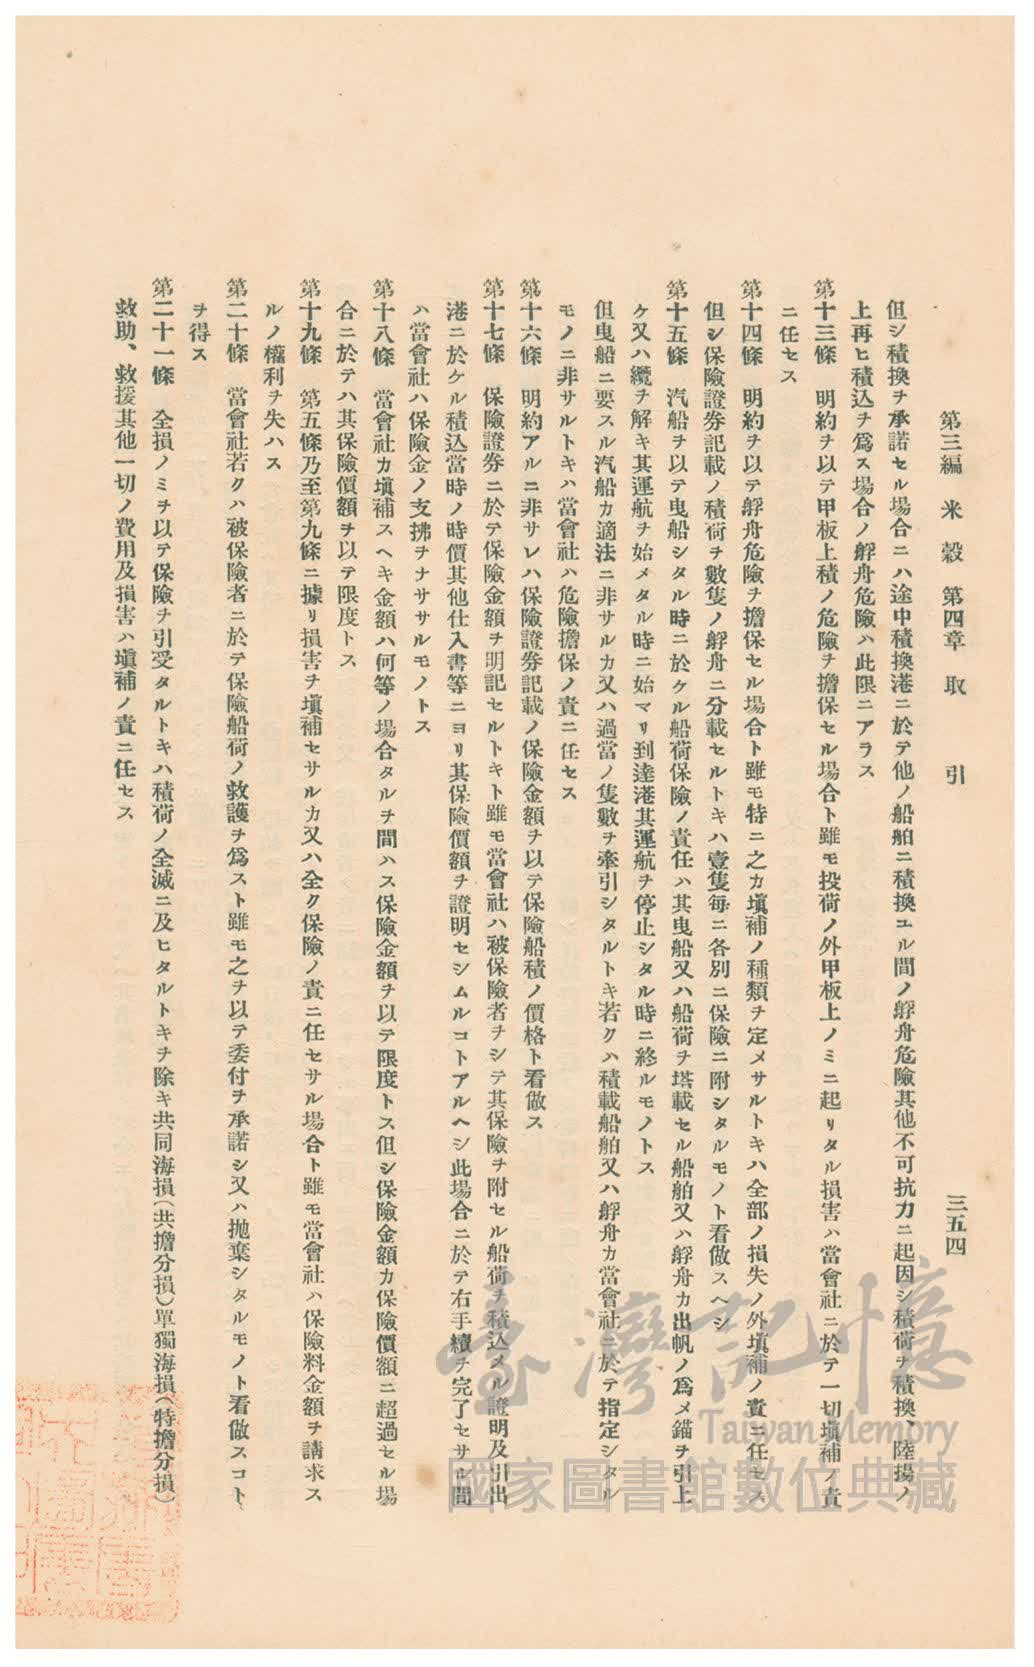 第三編 米穀 第四章 取引 三五四
但シ積換ヲ承諾セル場合ニハ途中積換港ニ於テ他ノ船舶ニ積換ユル間ノ艀舟危險其他不可抗力ニ起因シ積荷ヲ積換、陸揚ノ
上再ヒ積込ヲ爲ス場合ノ艀舟危險ハ此限ニアラス
第十三條 明約ヲ以テ甲板上積ノ危險ヲ擔保セル場合ト雖モ投荷ノ外甲板上ノミニ起リタル損害ハ當會社ニ於テ一切塡補ノ責
ニ任セス
第十四條 明約ヲ以テ艀舟危險ヲ擔保セル場合ト雖モ特ニ之カ塡補ノ種類ヲ定メサルトキハ全部ノ損失ノ外塡補ノ責ニ任セス
但シ保險證券記載ノ積荷ヲ數隻ノ艀舟ニ分載セルトキハ壹隻每ニ各別ニ保險ニ附シタルモノト看做スヘシ
第十五條 汽船ヲ以テ曳船シタル時ニ於ケル船荷保險ノ責任ハ其曳船又ハ船荷ヲ塔載セル船舶又ハ艀舟カ出帆ノ爲メ錨ヲ引上
ケ又ハ纜ヲ解キ其運航ヲ始メタル時ニ始マリ到達港其運航ヲ停止シタル時ニ終ルモノトス
但曳船ニ要スル汽船カ適法ニ非サルカ又ハ過當ノ隻數ヲ牽引シタルトキ若クハ積載船舶又ハ艀舟カ當會社ニ於テ指定シタル
モノニ非サルトキハ當會社ハ危險擔保ノ責ニ任セス
第十六條 明約アルニ非サレハ保險證券記載ノ保險金額ヲ以テ保險船積ノ價格ト看做ス
第十七條 保險證券ニ於テ保險金額ヲ明記セルトキト雖モ當會社ハ被保險者ヲシテ其保險ヲ附セル船荷ヲ積込メル證明及引出
港ニ於ケル積込當時ノ時價其他仕入書等ニヨリ其保險價額ヲ證明セシムルコトアルヘシ此場合ニ於テ右手續ヲ完了セサル間
ハ當會社ハ保險金ノ支拂ヲナササルモノトス
第十八條 當會社カ塡補スヘキ金額ハ何等ノ場合タルヲ問ハス保險金額ヲ以テ限度トス但シ保險金額カ保險價額ニ超過セル場
合ニ於テハ其保險價額ヲ以テ限度トス
第十九條 第五條乃至第九條ニ據リ損害ヲ塡補セサルカ又ハ全ク保險ノ責ニ任セサル場合ト雖モ當會社ハ保險料金額ヲ請求ス
ルノ權利ヲ失ハス
第二十條 當會社若クハ被保險者ニ於テ保險船荷ノ救護ヲ爲スト雖モ之ヲ以テ委付ヲ承諾シ又ハ拋棄シタルモノト看做スコト
ヲ得ス
第二十一條 全損ノミヲ以テ保險ヲ引受タルトキハ積荷ノ全滅ニ及ヒタルトキヲ除キ共同海損(共擔分損)單獨海損(特擔分損)
救助、救援其他一切ノ費用及損害ハ塡補ノ責ニ任セス
臺灣記憶
Taiwan Memory
國家圖書館數位典藏